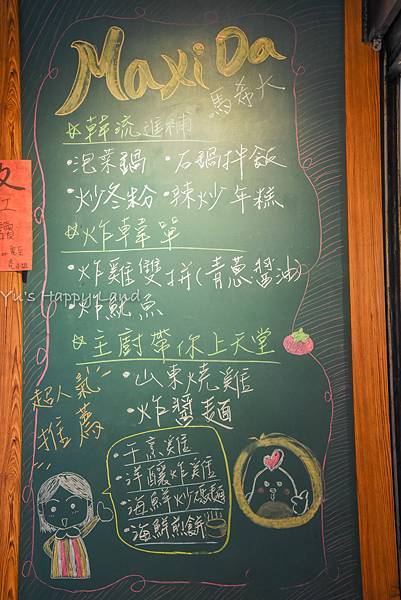 MaxiDa
馬希大
韓流進補
・泡菜鍋 ・石鍋拌飯
・炒冬粉 ・辣炒年糕
炸韓單
・炸雞雙拼(青蔥醬油)
・炸魷魚
主廚帶你上天堂
・山東燒雞
・炸醬麵
超人氣推薦
・干烹雞
・洋釀炸雞
・海鮮炒碼麵
・海鮮煎餅
Yu's Happy Land